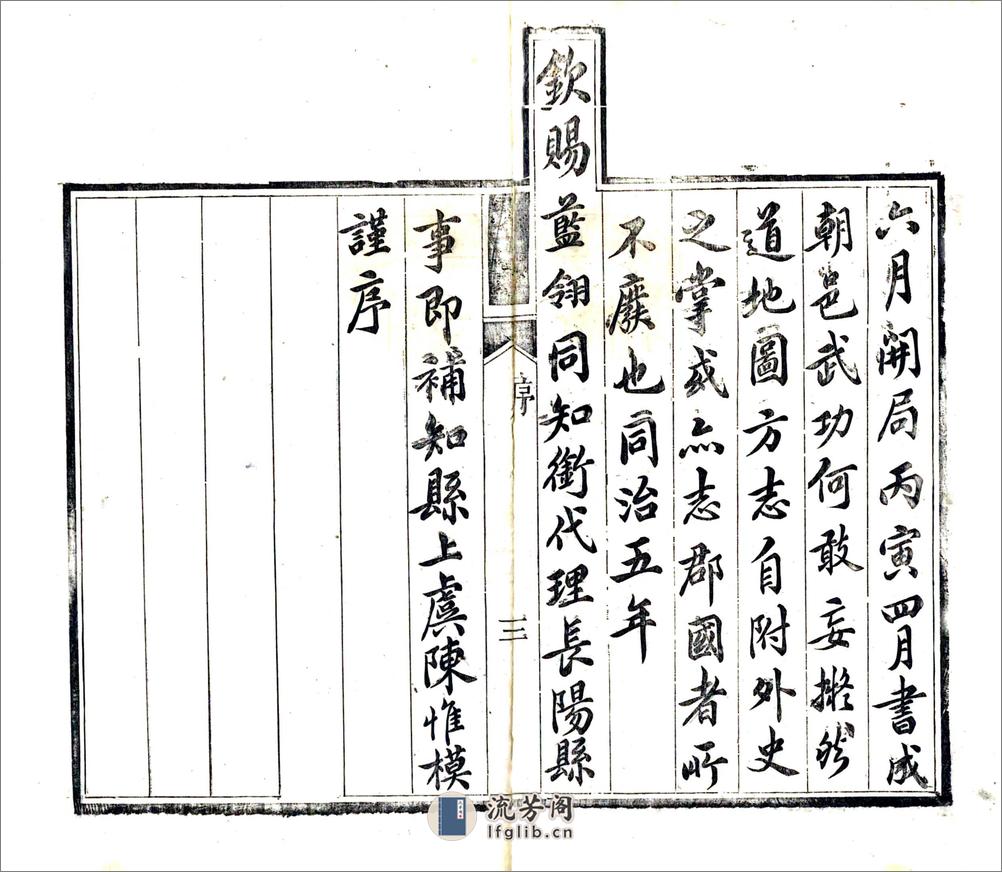 六月開局丙寅四月書成
朝邑武功何敢妄擬然
道地圖方志自附外史
之掌或亦志郡國者所
不廢也同治五年
欽賜藍翎同知銜代理長陽縣
序
三
事即補知縣上虞陳惟模
謹序
流芳阁
lfglib.cn